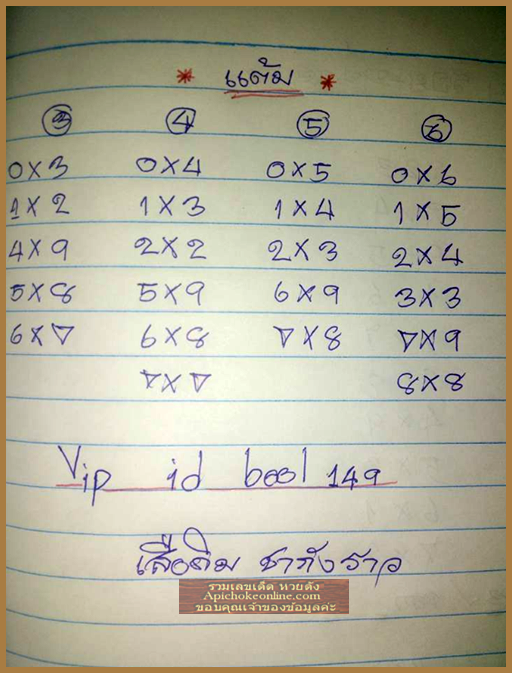 * แต้ม *
3 4 5 6
0X3 0X4 0X5 0X6
1X2 1X3 1X4 1X5
4X9 2X2 2X3 2X4
5X8 5X9 6X9 3X3
6X7 6X8 7X8 7X9
7X7 8X8
Vip id bool 149
เสือดิม ชากังราว
รวมเลขเด็ด หวยดัง
Apichokeonline.com
ขอบคุณเจ้าของข้อมูลค่ะ